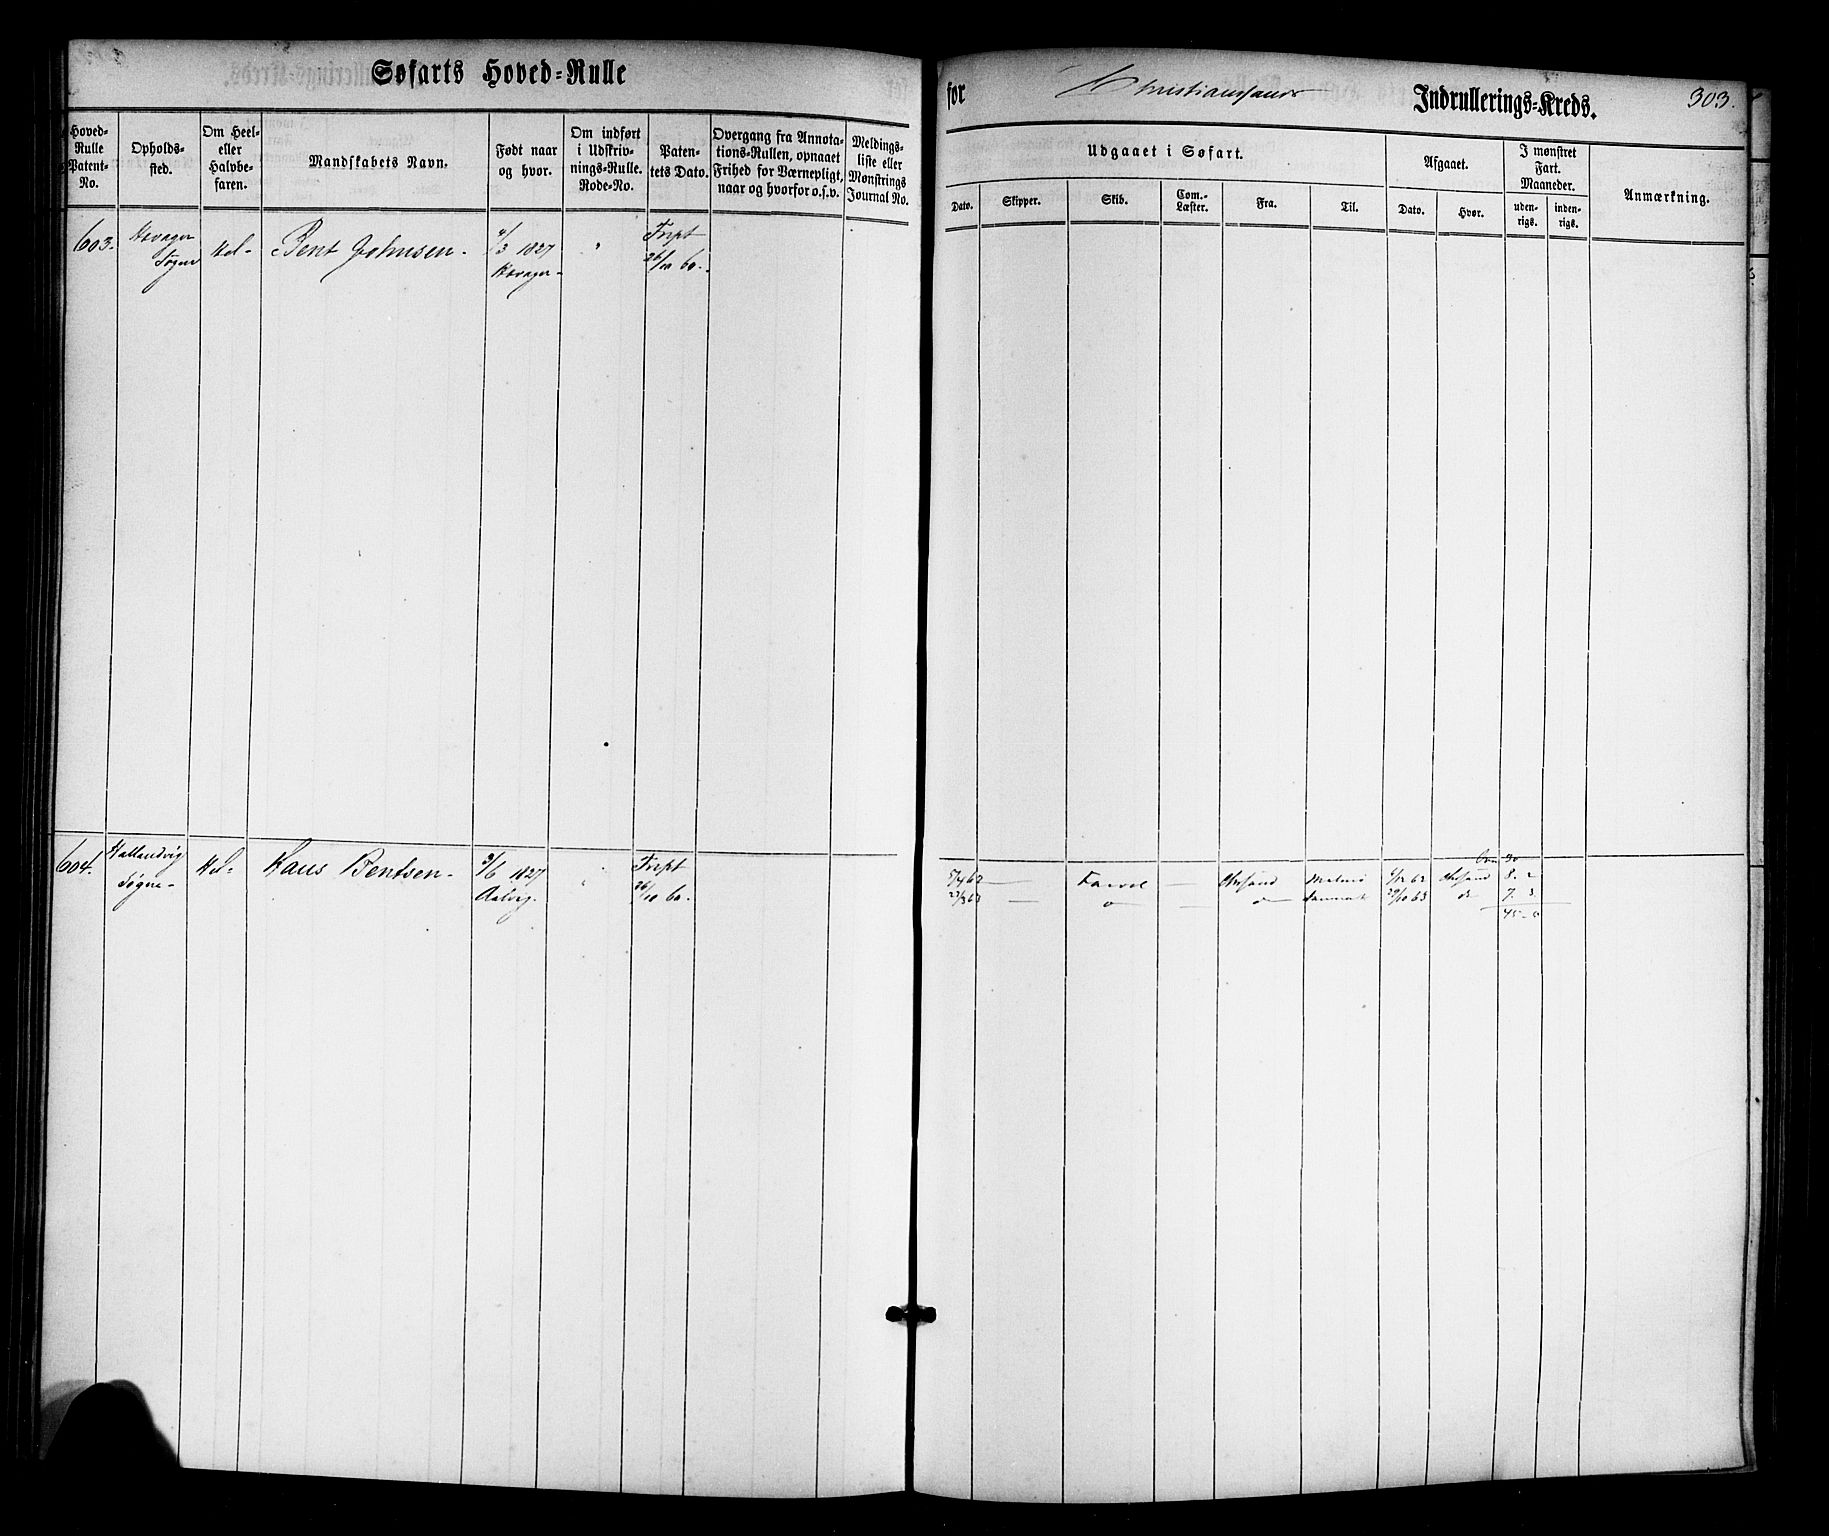 Søfarts Hoved=Rulle
for Christianssands Indrullerings=Kreds. 303.
Hoved-
Rulle
Patent-
No.
Opholds-
sted.
Om Heel-
eller
Halvbe-
faren.
Mandskabets Navn.
Født naar
og hvor.
Om indført
i Udskriv-
nings-Rulle.
Rode-No.
Paten-
tets Dato.
Overgang fra Annota-
tions-Rullen, opnaaet
Frihed for Værnepligt,
naar og hvorfor o.s.v.
Meldings-
liste eller
Mønstrings
Journal No.
Udgaaet i Søfart.
Dato.
Skipper.
Skib.
Com.-
Læster.
Fra.
Til.
Afgaaet.
Dato.
Hvor.
I mønstret
Fart.
Maaneder.
uden-
rigs.
inden-
rigs.
Anmærkning.
603.
Søgne
Hel-
Bent Johnsen.
/3 1827
"
Frpt
26/10 60.
604.
Hallandvig
Søgne-
Hel-
Hans Bentsen-
3/6 1827
Aalvig.
"
Frpt
26/10 60.
Farvel
Chrsand
62
Chrsand
30
8-2
29/10 63
do
7-3